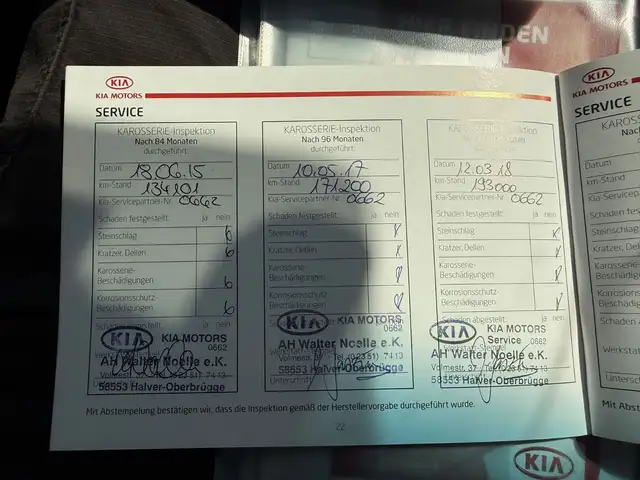 KIA
KIA MOTORS
SERVICE
KAROSSERIE-Inspektion
Nach 84 Monaten
durchgeführt:
Datum 18.06.15
km-Stand 134201
Kia-Servicepartner-Nr. 0662
Schäden festgestellt: ja nein
Steinschlag
Kratzer, Dellen
Karosserie-
Beschädigungen
Korrosionsschutz-
Beschädigungen
KIA KIA MOTORS
0662
AH Walter Noelle e.K.
Volmestr. 37
58553 Halver-Oberbrügge
KAROSSERIE-Inspektion
Nach 96 Monaten
durchgeführt:
Datum 10.05.17
km-Stand 171.200
Kia-Servicepartner-Nr. 0662
Schäden festgestellt: ja nein
Steinschlag
Kratzer, Dellen
Karosserie-
Beschädigungen
Korrosionsschutz-
Beschädigungen
KIA KIA MOTORS
0662
AH Walter Noelle e.K.
Volmestr. 37 Tel. (02351) 7413
58553 Halver-Oberbrügge
durchgeführt:
Datum 12.03.18
km-Stand 193000
Kia-Servicepartner-Nr. 0662
Schäden festgestellt: ja nein
Steinschlag
Kratzer, Dellen
Karosserie-
Beschädigungen
Korrosionsschutz-
Beschädigungen
KIA KIA MOTORS
Service 0662
AH Walter Noelle e.K.
Volmestr. 37 Tel. (02351) 7413
58553 Halver-Oberbrügge
Mit Abstempelung bestätigen wir, dass die Inspektion gemäß der Herstellervorgabe durchgeführt wurde.
22
KIA
KIA MOTORS
SERVICE
Datum
km-Stand
Kia-Servicepa
Schäden festg
Steinschlag
Kratzer, Dellen
Karosserie-
Beschädigunge
KIA